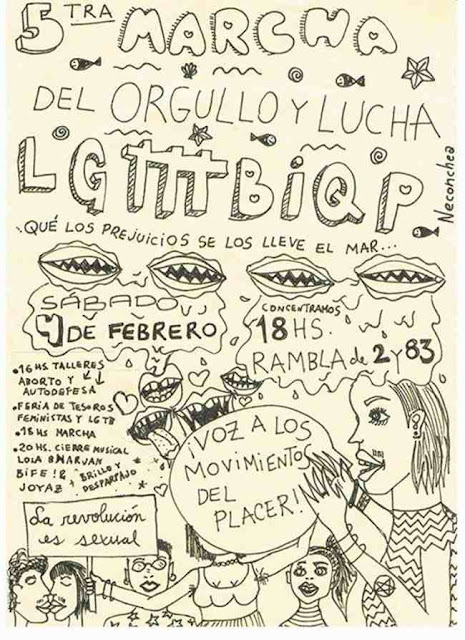 5TRA MARCHA
DEL ORGULLO Y LUCHA
LGTTTBIQP
Neconchea
QUÉ LOS PREJUICIOS SE LOS LLEVE EL MAR...
SÁBADO
4 DE FEBRERO
CONCENTRAMOS
18 HS.
RAMBLA de 2 y 83
•16 HS. TALLERES
ABORTO Y
AUTODEFESA
•FERIA DE TESOROS
FEMINISTAS Y LGTB
•18 HS MARCHA
•20 HS. CIERRE MUSICAL
LOLA BHARVAN
BIFE!&
JOYAZ
BRILLO Y
DESPARPAJO
¡VOZ A LOS
MOVIMIENTOS
DEL
PLACER!
La revolución
es sexual